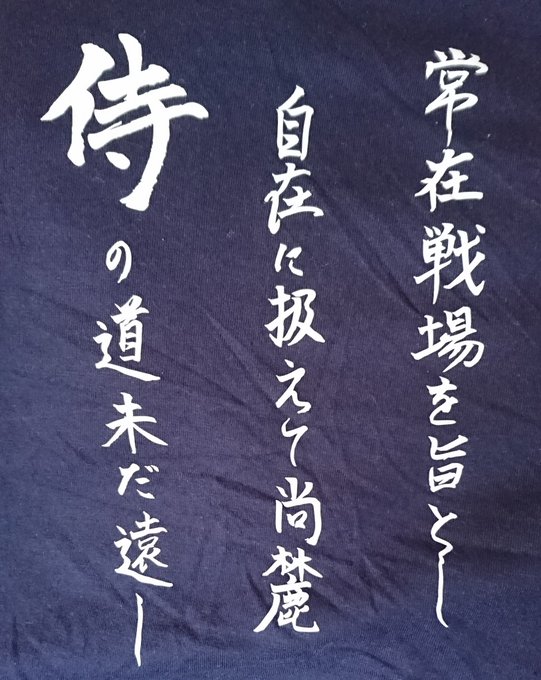 常在戦場を旨とし
自在に扱えて尚麓
侍の道未だ遠し